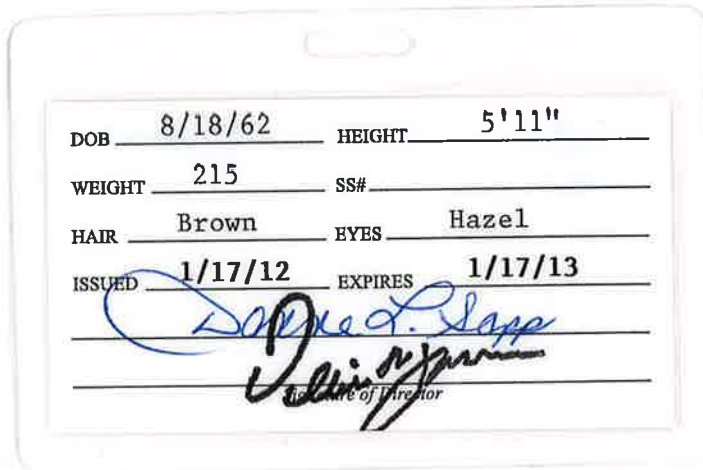 DOB 8/18/62 HEIGHT 5'11"
WEIGHT 215 SS#
HAIR Brown EYES Hazel
ISSUED 1/17/12 EXPIRES 1/17/13
L. Sapp
of Director